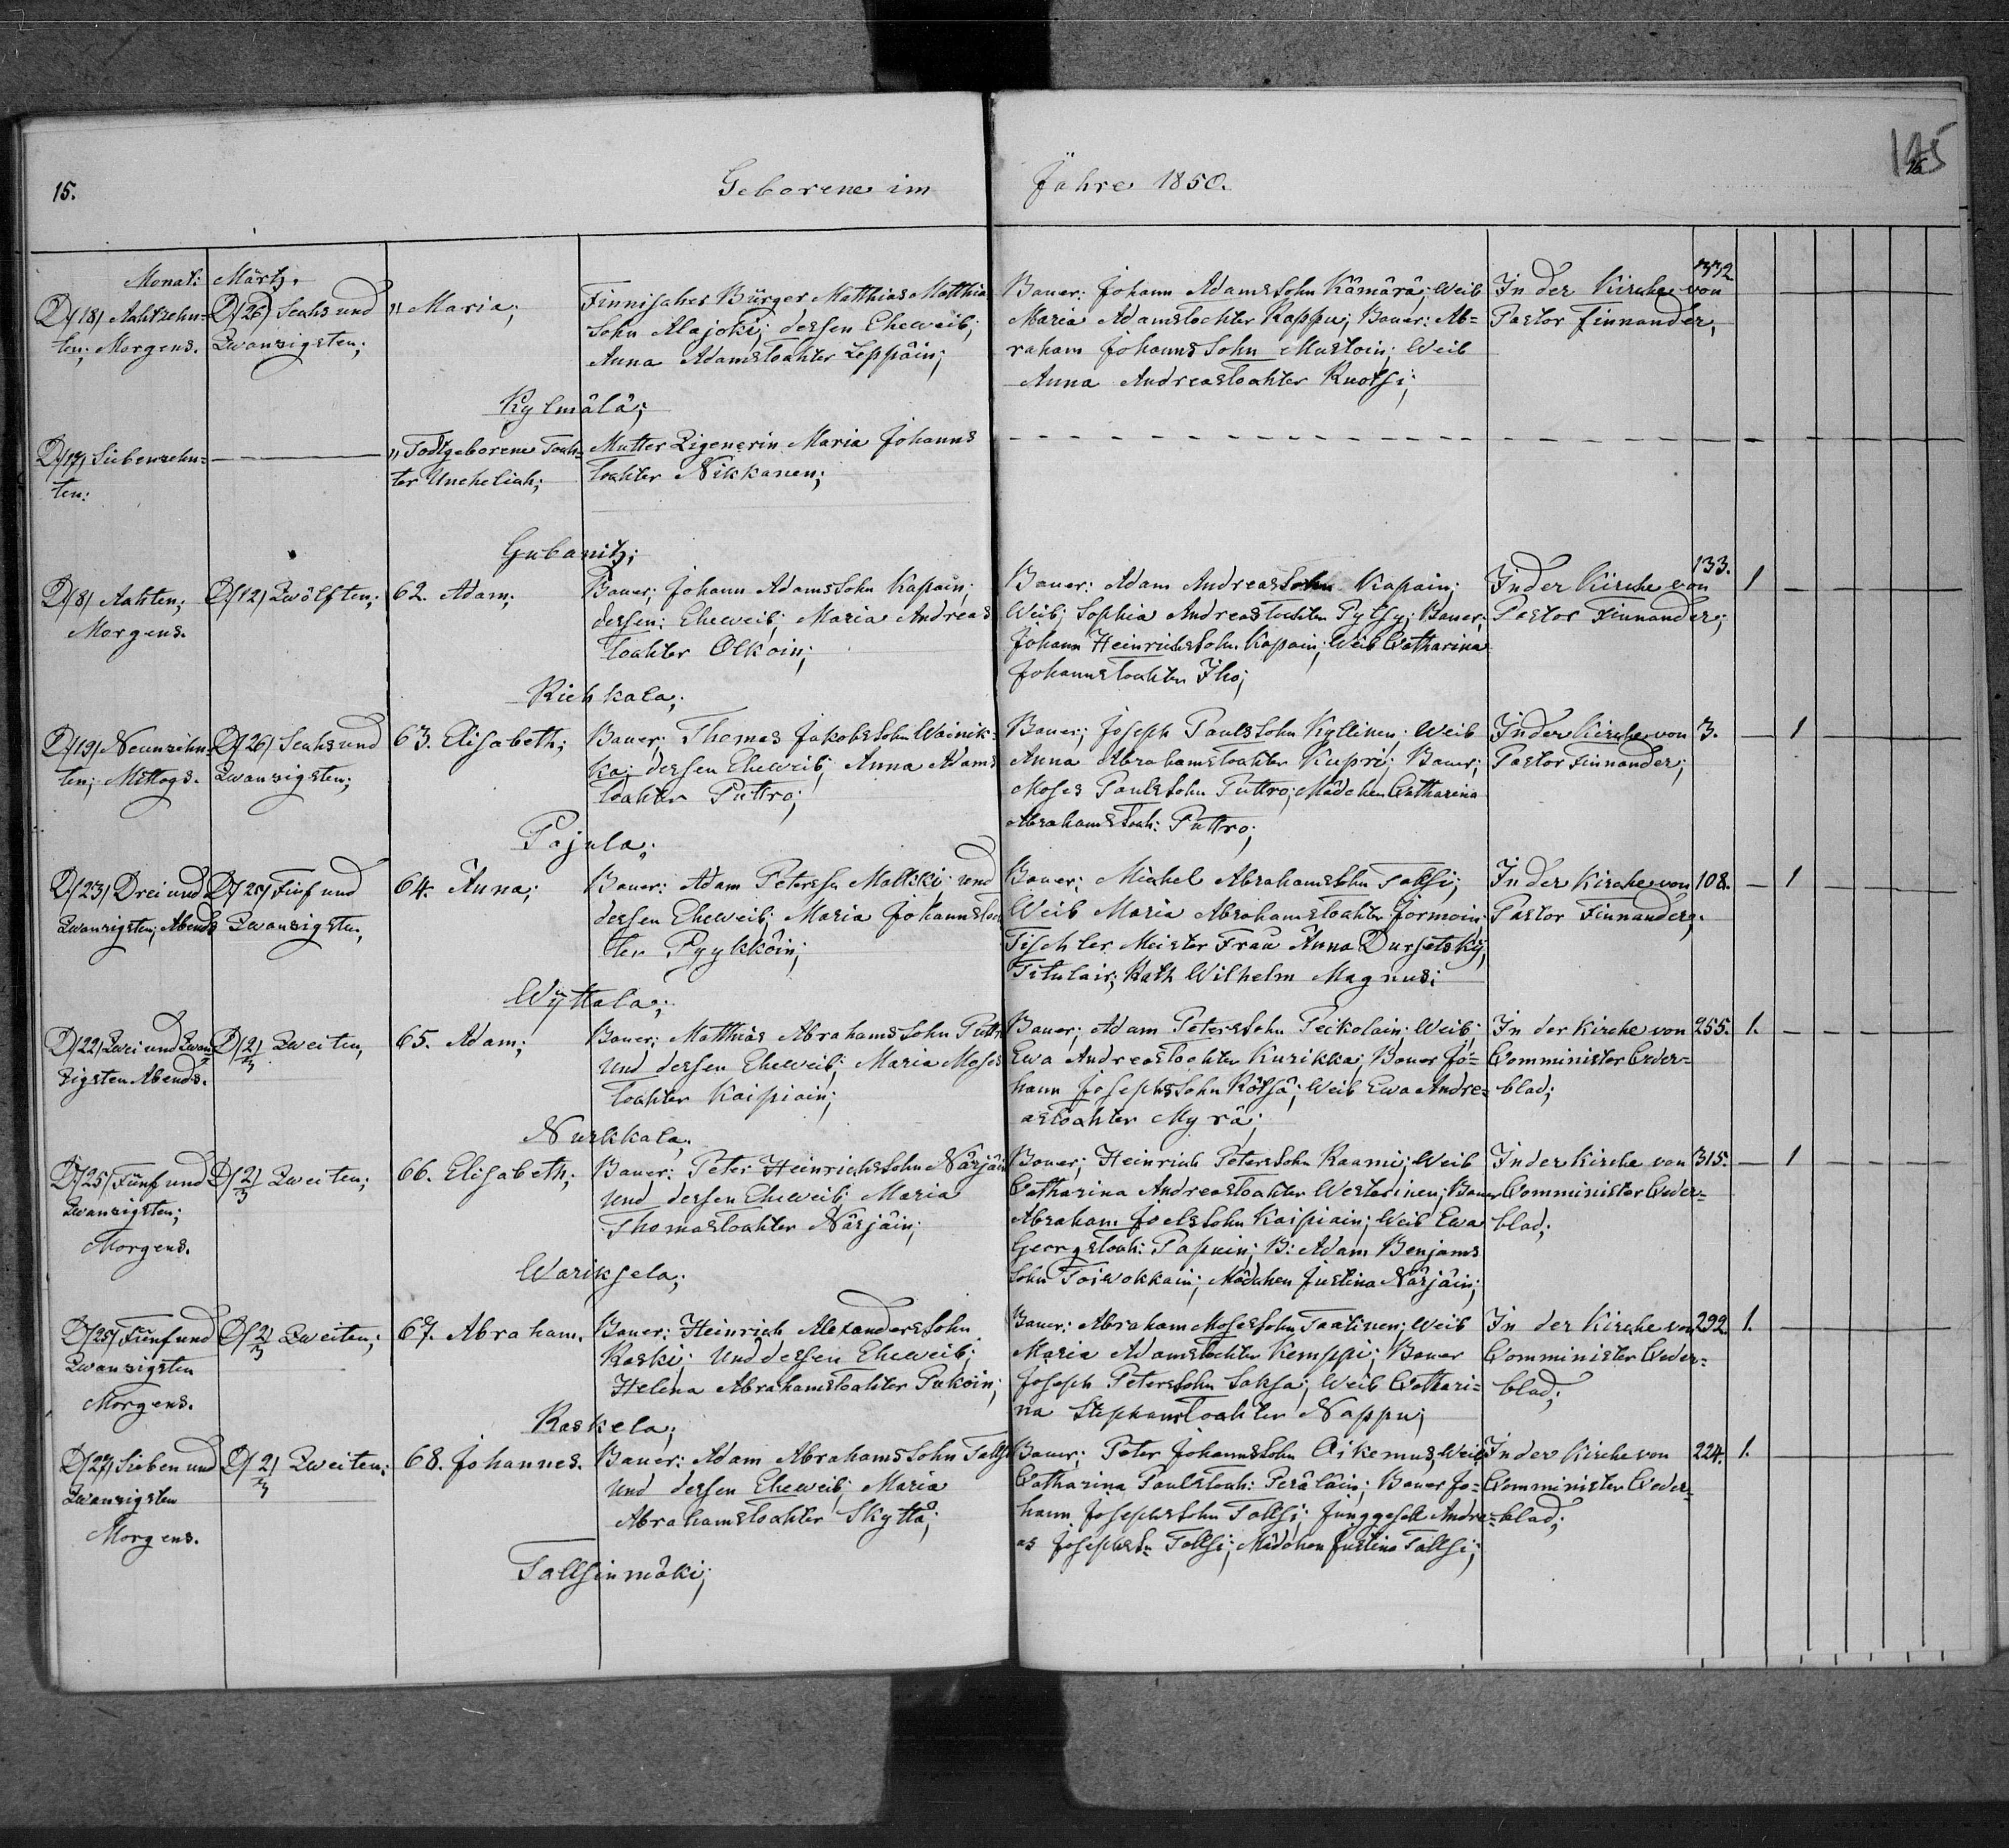 15.
Geborene im Jahre 1850.
125
16
Monat: Märtz.
D/18/ Achtzehn=
ten; Morgens.
D/26/ Sechs und
Zwanzigsten;
" Maria;
Finnischer Bürger Matthias Matthia
Sohn Alajoki; dessen Eheweib;
Anna Adamstochter Leppäin;
Bauer: Johann Adamssohn Kämärä; Weib
Maria Adamstochter Kappu; Bauer: Ab=
raham Johanns Sohn Mustoin; Weib
Anna Andreastochter Ruotsi;
In der Kirche von
Pastor Finnander,
332
Kylmälä;
D/17/ Siebenzehn=
ten:
" Todtgeborene Toch=
ter Unehelich;
Mutter Zigenerin Maria Johanns
Tochter Nikkanen;
Gubanitz;
D/8/ Achten;
Morgens.
D/12/ Zwölften;
62. Adam;
Bauer; Johann Adamssohn Kapain;
dessen: Eheweib; Maria Andreas
Tochter Olkoin;
Bauer: Adam Andreassohn Kapain;
Weib; Sophia Andreastochter Pytsy; Bauer;
Johann Heinrichssohn Kapain; Weib Catharina
Johannstochter Iho;
In der Kirche von
Pastor Finnander;
133.
1
Richkala;
D/19/ Neunzehn=
ten; Mittags.
D/26/ Sechs und
Zwanzigsten;
63. Elisabeth;
Bauer; Thomas Jakobssohn Wainik=
ka; dessen Eheweib; Anna Adams
Tochter Puttro;
Bauer; Joseph Paulssohn Kyllinen; Weib
Anna Abrahamstochter Kupri; Bauer;
Moses Paulssohn Puttro; Mädchen Catharina
Abrahamstoch: Puttro;
In der Kirche von
Pastor Finnander;
3.
1
Pajula;
D/23/ Drei und
Zwanzigsten; Abends
D/25/ Fünf und
Zwanzigsten,
64. Anna;
Bauer: Adam Peterssn Malliki und
dessen Eheweib; Maria Johannstoch
ter Pyykköin;
Bauer; Michel Abrahamssohn Tallsi;
Weib Maria Abrahamstochter Jormoin;
Tischler Meister Frau Anna Dursetsky;
Titulair; Rath Wilhelm Magnus;
In der Kirche von
Pastor Finnander;
108.
1
Wyttala;
D/22/ Zwei und Zwan=
zigsten Abends.
D/2/3 Zweiten,
65. Adam;
Bauer; Matthias Abrahamssohn Puttr
und dessen Eheweib; Maria Moses
Tochter Kaipiain;
Bauer; Adam Peterssohn Peikolain; Weib;
Ewa Andreastochter Kurikka; Bauer Jo=
hann Josephssohn Rötsä; Weib Ewa Andre=
astochter Myrä;
In der Kirche von
Comminister Ceder=
blad;
255.
1.
Nurkkala;
D/25/ Fünf und
Zwanzigsten;
Morgens.
D/2/3 Zweiten;
66. Elisabeth;
Bauer: Peter Heinrichssohn Närjäin
und dessen Eheweib; Maria
Thomastochter Närjäin;
Bauer; Heinrich Peterssohn Raami; Weib
Catharina Andreastochter Westerinen; Bauer
Abraham Joelssohn Kaipiain; Weib Ewa
Georgstoch: Papuin; B: Adam Benjams
Sohn Toiwokkain; Mädchen Justina Närjäin;
In der Kirche von
Comminister Ceder=
blad;
315.
1
Wariksela;
D/25/ Fünf und
Zwanzigsten
Morgens.
D/2/3 Zweiten;
67. Abraham.
Bauer: Heinrich Alexanderssohn
Raski; Und dessen Eheweib;
Helena Abrahamstochter Pukoin;
Bauer: Abraham Mosessohn Taatinen; Weib
Maria Adamstochter Kemppi; Bauer
Joseph Peterssohn Saksa; Weib Cathari=
na Stephanstochter Nappu;
In der Kirche von
Comminister Ceder=
blad;
292.
1.
Raskela;
D/27/ Sieben und
Zwanzigsten
Morgens.
D/2/3 Zweiten;
68. Johannes.
Bauer: Adam Abrahamssohn Talls
und dessen Eheweib; Maria
Abrahamstochter Skyttä;
Bauer; Peter Johannssohn Oikemus; Weib
Catharina Paulstoch: Peräläin; Bauer Jo=
hann Josephssohn Tallsi; Junggesell Andre=
as Josephs Sn Tallsi; Mädchen Justina Tallsi;
In der Kirche von
Comminister Ceder=
blad;
224.
1.
Tallsinmäki;